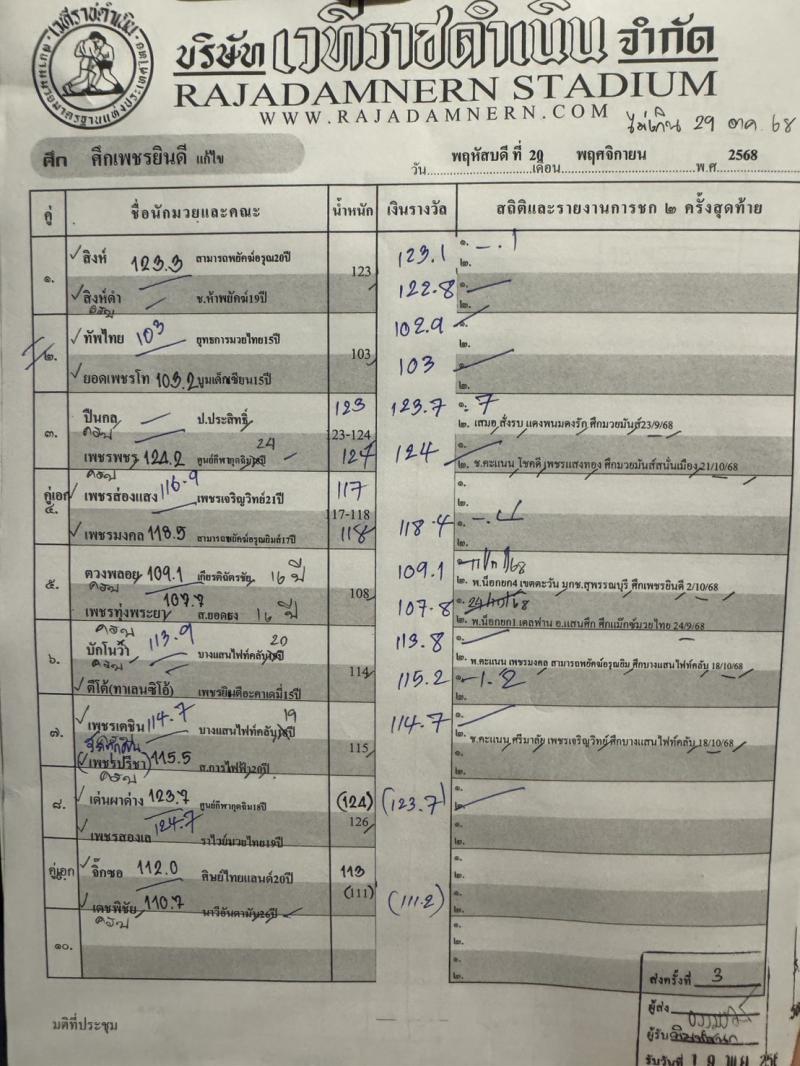 บริษัท เวทีราชดำเนิน จำกัด
RAJADAMNERN STADIUM
WWW.RAJADAMNERN.COM
ไม่เกิน 29 ตค. 68
ศึก ศึกเพชรยินดี แก้ไข
วัน พฤหัสบดี ที่ 20 เดือน พฤศจิกายน พ.ศ 2568
คู่ ชื่อนักมวยและคณะ น้ำหนัก เงินรางวัล สถิติและรายงานการชก ๒ ครั้งสุดท้าย
๑. สิงห์ 123.3 สามารถพยัคฆ์อรุณ20ปี 123 123.1 ๑. -.1
๒.
สิงห์ดำ ช.ห้าพยัคฆ์19ปี 122.8 ๑.
๒.
๒. ทัพไทย 103 ยุทธการมวยไทย15ปี 103 102.9 ๑.
๒.
ยอดเพชรโท 103.2 บูมเด็กเซียน15ปี 103 ๑.
๒.
๓. ปืนกล ป.ประสิทธิ์ 123 123-124 123.7 ๑. 7
๒. เสมอ สั่งรบ แดงพนมดงรัก ศึกมวยมันส์23/9/68
เพชรพชร 124.2 ศูนย์กีฬากุดจิม 24 124 124 ๑.
๒. ช.คะแนน โชคดี เพชรแสงทอง ศึกมวยมันส์สนั่นเมือง 21/10/68
คู่เอก ๔. เพชรส่องแสง 116.9 เพชรเจริญวิทย์21ปี 117 117-118 ๑.
๒.
เพชรมงคล 118.5 สามารถพยัคฆ์อรุณยิมส์17ปี 118 118.4 ๑.
๒.
๕. ดวงพลอย 109.1 เกียรติฉัตรชัย 16 ปี 108 109.1
๒. พ.น็อกยก4 เขตตะวัน มุกช.สุพรรณบุรี ศึกเพชรยินดี 2/10/68
เพชรทุ่งพระยา 107.7 ส.ยอดธง 16 ปี 107.8 ๑. 24/10/68
๒. พ.น็อกยก1 เดลฟาน อ.แสนศึก ศึกแม็กซ์มวยไทย 24/9/68
๖. บักโนว๊า 113.9 บางแสนไฟท์คลับ 20 ปี 114 113.8 ๑.
๒. พ.คะแนน เพชรมงคล สามารถพยัคฆ์อรุณยิม ศึกบางแสนไฟท์คลับ 18/10/68
ดีโด้(ทาเลนซิโอ้) เพชรยินดีอะคาเดมี่15ปี 115.2 ๑. -1.2
๒.
๗. เพชรเตชิน 114.7 บางแสนไฟท์คลับ 19 ปี 115 114.7 ๑.
๒. ช.คะแนน ศรีมาลัย เพชรเจริญวิทย์ ศึกบางแสนไฟท์คลับ 18/10/68
(เพชรปรีชา) 115.5 ส.การไฟฟ้า20ปี ๑.
๒.
๘. เด่นผาด่าง 123.7 ศูนย์กีฬากุดจิม18ปี (124) 126 (123.7) ๑.
๒.
เพชรสองเล 124.7 ราไวย์มวยไทย19ปี ๑.
๒.
คู่เอก ๙. จิ๊กซอ 112.0 ศิษย์ไทยแลนด์20ปี 113 (111) ๑.
๒.
เดชพิชัย 110.7 นาวีอันดามัน26ปี (111.2) ๑.
๒.
๑๐. ๑.
๒.
๑.
๒.
มติที่ประชุม
ส่งครั้งที่ 3
ผู้ส่ง
ผู้รับ
รับวันที่ 19 พ.ย. 256